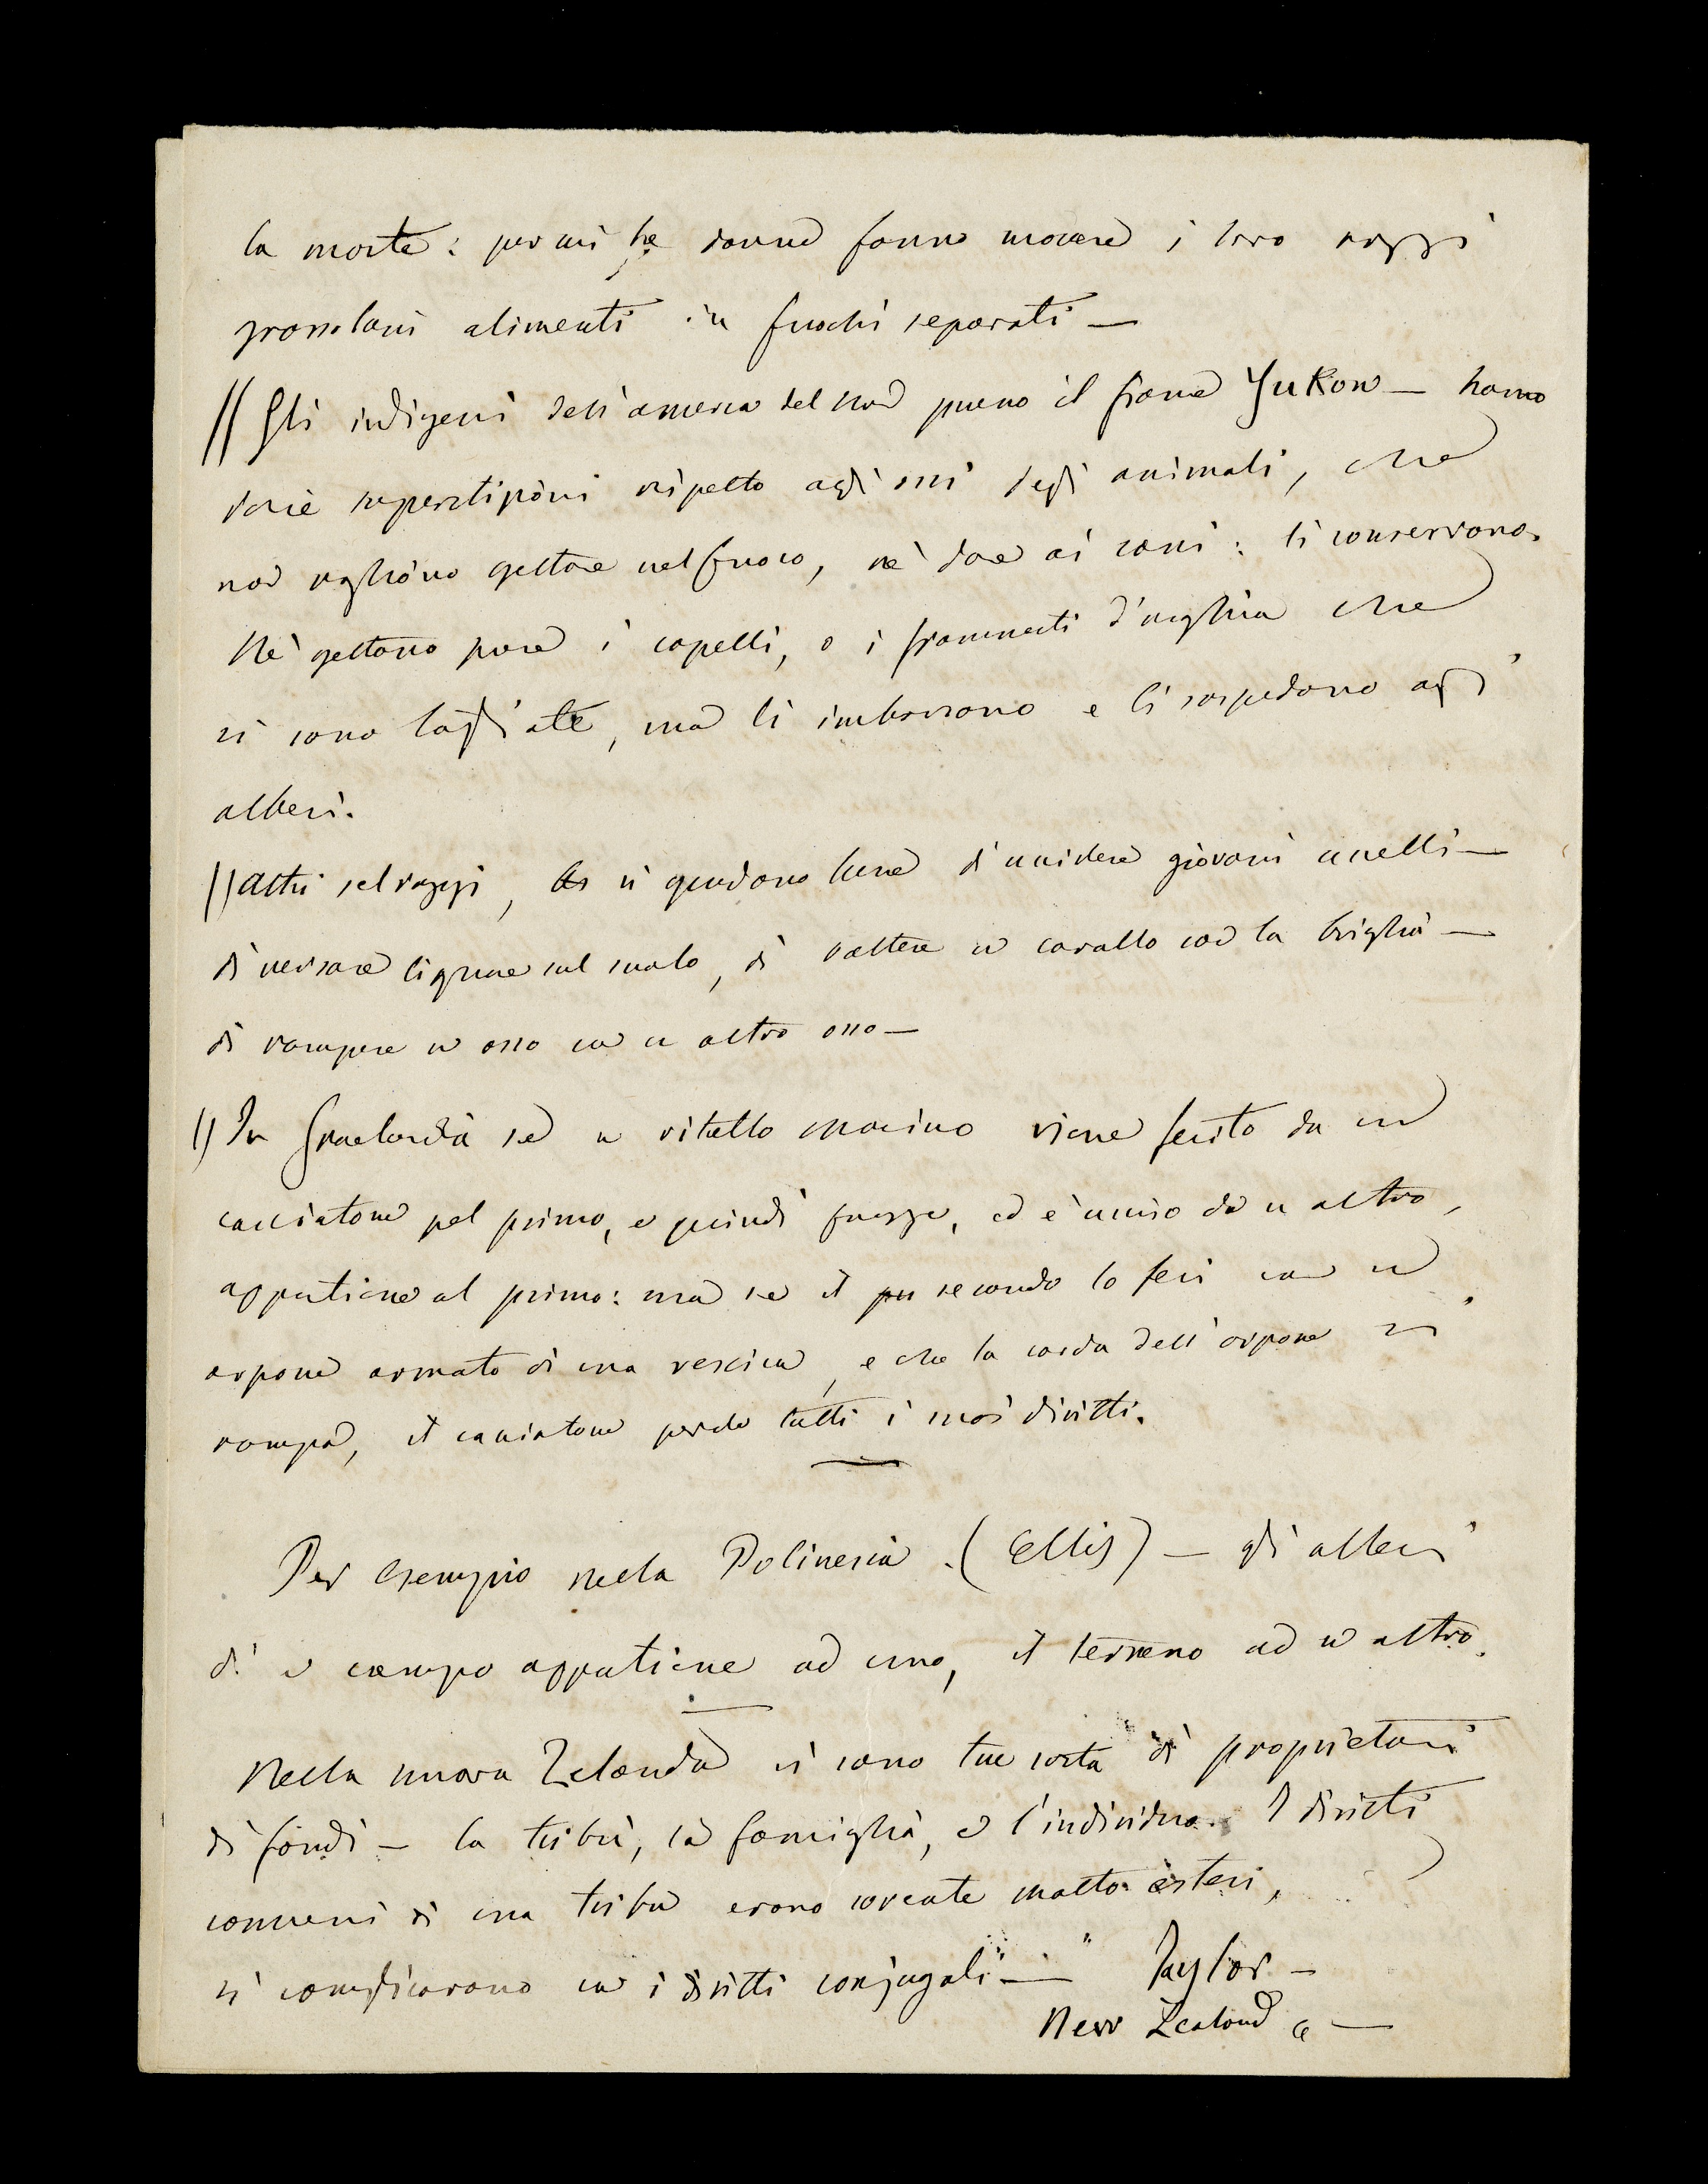 la morte: per cui le donne fanno cuocere i loro rozzi
grossolani alimenti in fuochi separati —
// Gli indigeni dell'america del Nord presso il fiume Yukon — hanno
varie superstizioni rispetto agli ossi degli animali, che
non vogliono gettare nel fuoco, nè dare ai cani: li conservano.
Nè gettano pure i capelli, o i frammenti d'unghia che
si sono tagliate, ma li imborsano e li sospendono agli
alberi.
// Altri selvaggi, si guardano bene di uccidere giovani uccelli —
di versare liquore sul suolo, di battere un cavallo con la briglia —
di rompere un osso con un altro osso —
// In Groelandia se un vitello marino viene ferito da un
cacciatore pel primo, e quindi fugge, ed è ucciso da un altro,
appartiene al primo: ma se il secondo lo ferì con un
arpone armato di una vescica, e che la corda dell'arpone si
rompa, il cacciatore perde tutti i suoi diritti.
Per esempio nella Polinesia. (Ellis) — gli alberi
di un campo appartiene ad uno, il terreno ad un altro.
Nella nuova Zelanda vi sono tre sorta di proprietari
di fondi — la tribù, la famiglia, e l'individuo. I diritti
comuni di una tribù erano sovente molto estesi,
si complicavano con i diritti conjugali" — " Taylor —
New Zealand e —